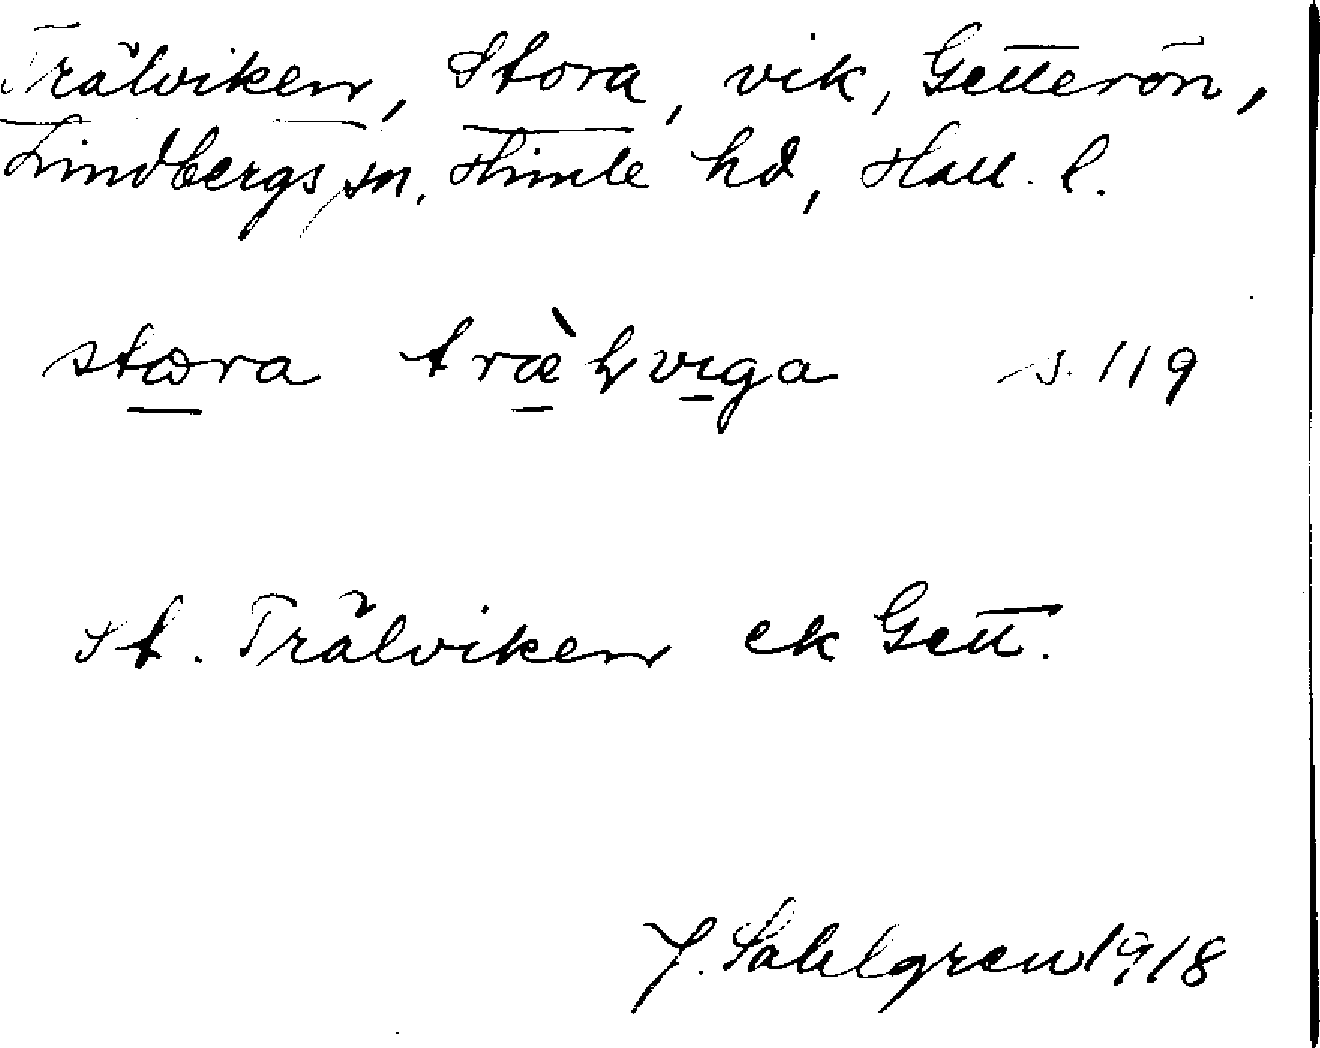 Trälviken, Stora, vik, Getterön,
Lindbergs sn, Himle hd, Hall. l.
stωra træ̀ɫvıga s. 119
St. Trälviken ek Gett.
J. Sahlgren 1918